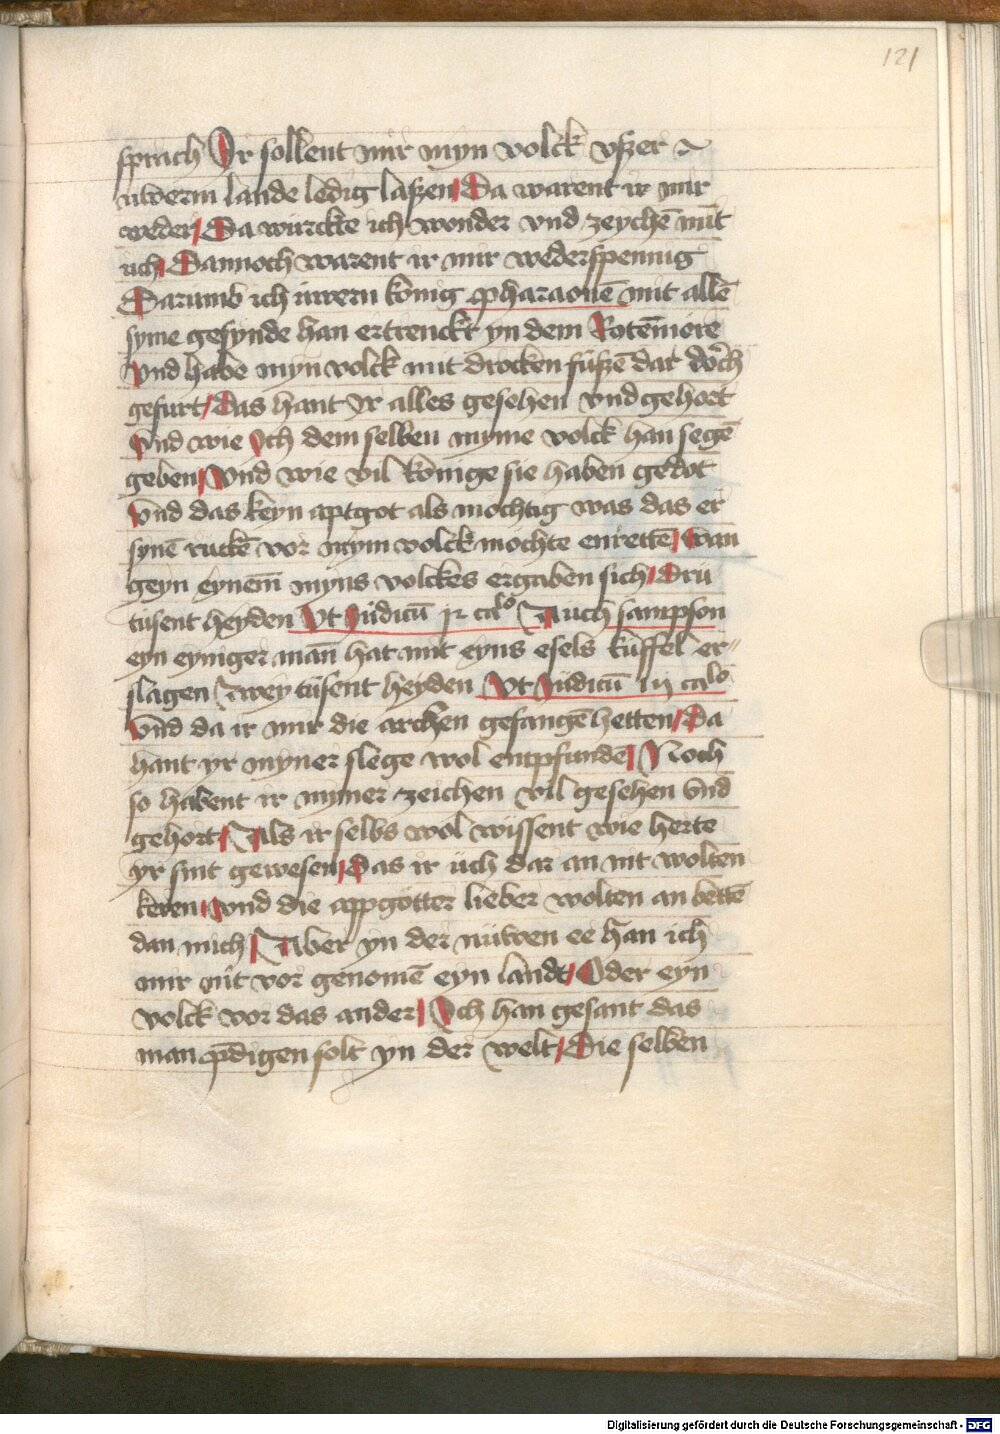 121
sprach Ir sollent mir myn volck vszer
uwerm lande ledig laszen Da warent ir mir
weder Da würckte ich wonder vnd zeychē mit
uch Dannoch warent ir mir wederspennig
Darumb ich uwern konig pharaonē mit allē
syme gesynde han ertrenckt yn dem Rotēmere
Vnd habe myn volck mit drocken füszē dar dorch
gefurt Das hant Ir alles gesehen vnd gehoet
Vnd wie Ich dem selben myme volck han segē
geben Vnd wie vil konige sie haben gedot
Vnd das keyn aptgot als mochtig was das er
synē ruckē vor mym volck mochte enrettē wan
geyn eynem myns volckes ergaben sich Drü
tusent heyden Vt Iudicū ca Auch sampson
eyn eyniger man hat mit eyns esels küffel er
slagen Zwey tusent heyden Vt Iudicū ca
Vnd da ir mir die archen gefangē hetten Da
hant yr myner slege wol entpfunde Noch
so habent ir myner zeichen vil gesehen Vnd
gehort Als ir selbs wol wissent wie herte
yr sint gewesen Das ir üch dar an nit wolten
keren vnd die appgötter lieber wolten an bettē
dan mich Aber yn der nüwen ee han ich
mir nit vor genomē eyn landt Oder eyn
volck vor das ander Ich han gesant das
man pdigen solt yn der welt Die selben
Digitalisierung gefördert durch die Deutsche Forschungsgemeinschaft - DFG